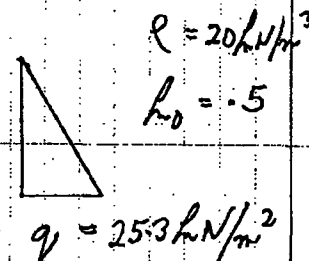 ρ = 20 kN/m³
k₀ = .5
q = 25.3 kN/m²